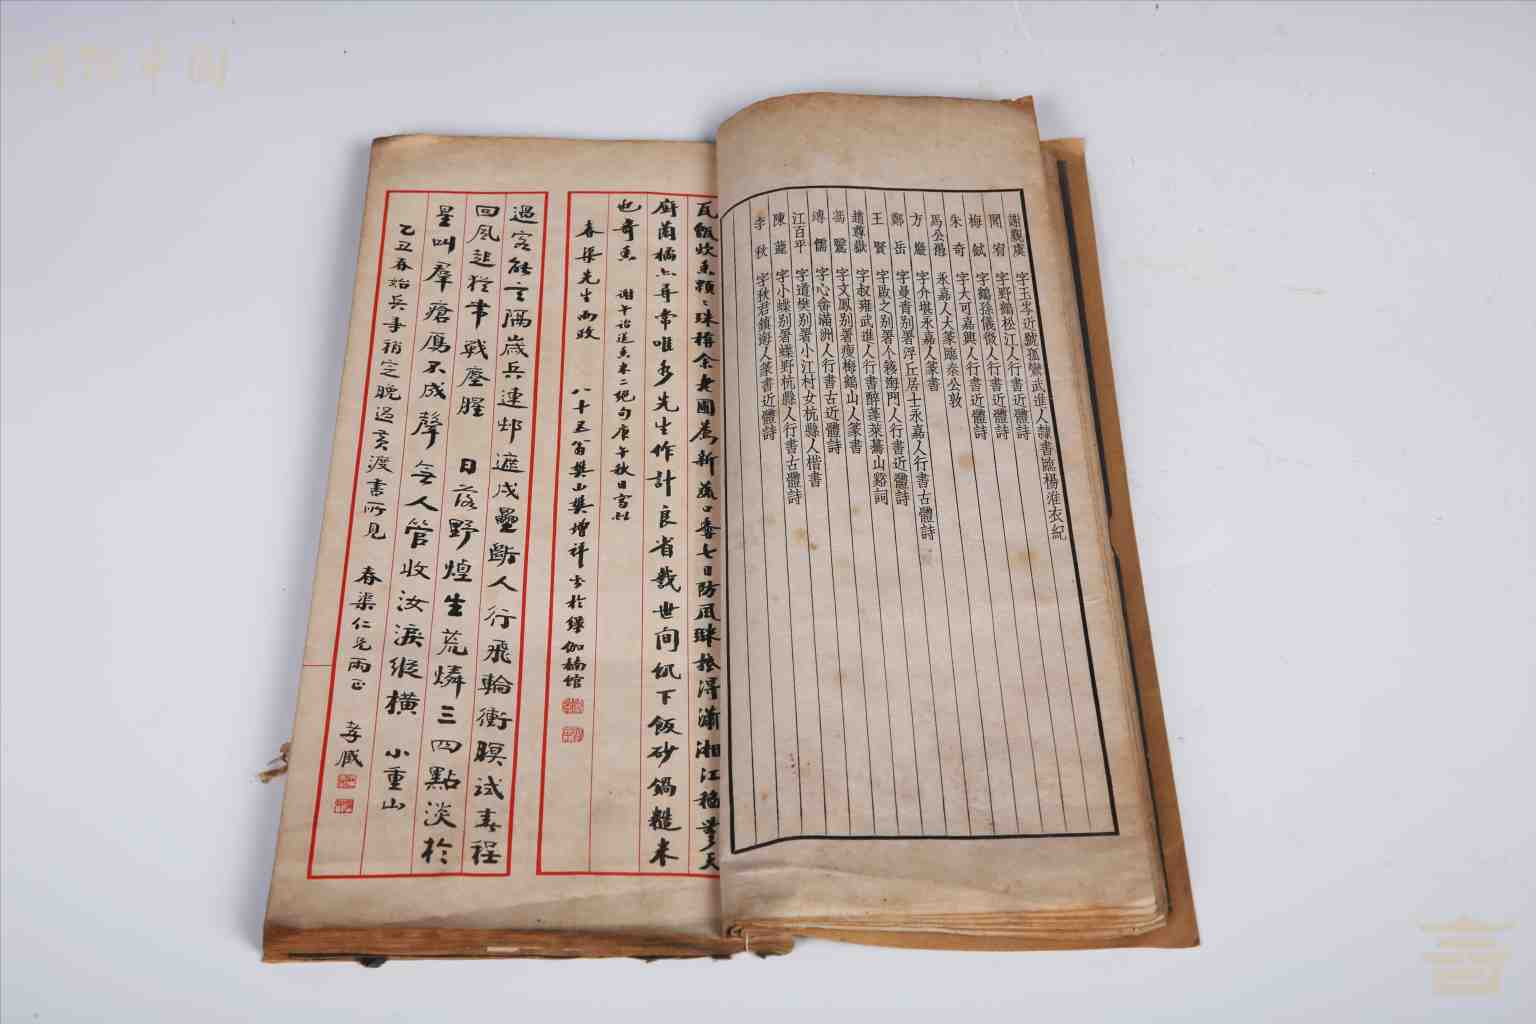 謝覲虞 字玉岑近號孤鸞武進人隸書臨楊淮表紀
聞宥 字野鶴松江人行書近體詩
梅 字鶴孫儀徵人行書近體詩
朱奇 字大可嘉興人行書近體詩
馬公愚 永嘉人大篆臨秦公敦
方巖 字介堪永嘉人篆書
鄭岳 字曼青別署浮丘居士永嘉人行書古體詩
王賢 字啟之別署个簃海門人行書近體詩
趙尊嶽 字叔雍武進人行書醉蓬萊驀山谿詞
字文鳳別署瘦梅鶴山人篆書
溥儒 字心畬滿洲人行書古近體詩
江百平 字道樊別署小江村女杭縣人楷書
陳蘧 字小蝶別署蝶野杭縣人行書古體詩
李秋 字秋君鎮海人篆書近體詩
瓦飯炊香顆顆珠稽余老圃薦新蔬口番七日防風粥抵得瀟湘江稻無天
廚蘭橘亦尋常唯多先生作計良省識世間低下飯砂鍋糙米
也奇香 謝午詒送香米二絕句庚午秋日寫
春渠先生兩政
八十五翁樊山樊增祥書於
過客能言隔歲兵連邨遮戍壘斷人行飛輪衝暝試春程
回風起猶帶戰塵腥 日落野煙生荒燐三四點淡於
星叫羣瘡雁不成聲無人管收汝淚縱橫 小重山
乙丑春始兵事稍定晚過黃渡書所見 春渠仁兄兩正 孝臧